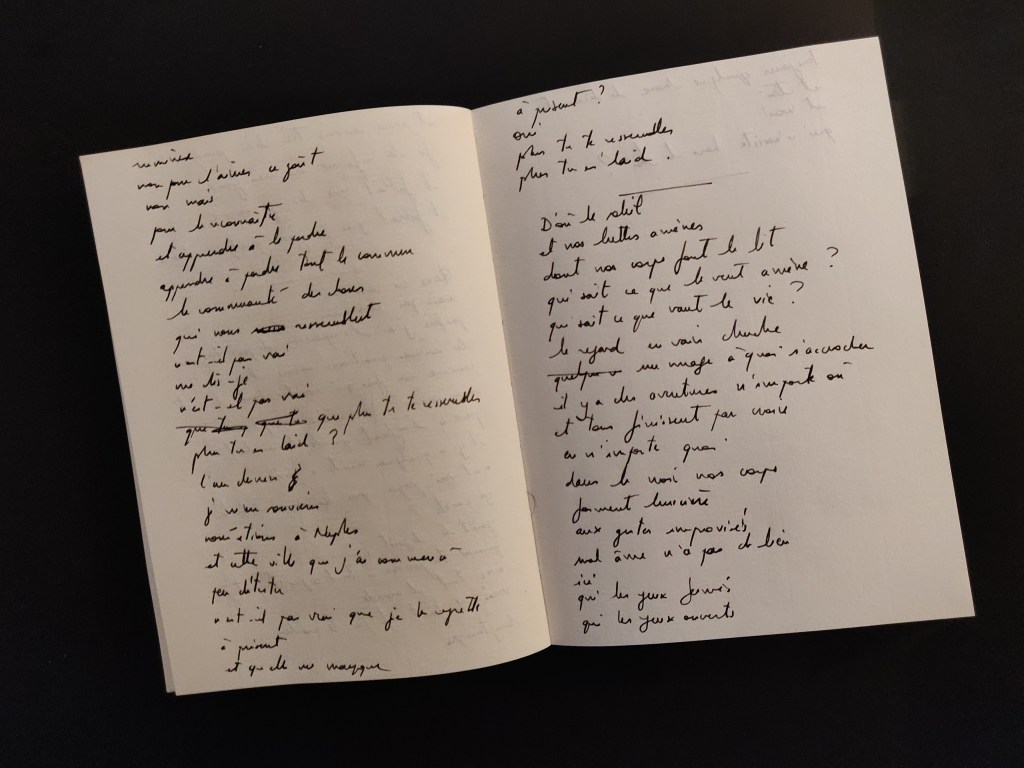 non pour l'aimer ce goût
non mais
pour le reconnaître
et apprendre à le perdre
apprendre à perdre tout le commun
la communauté des choses
qui nous nous ressemblent
n'est-il pas vrai
me dis-je
n'est-il pas vrai
que tu, que tu que plus tu te ressembles
plus tu es laid ?
l'an dernier
je m'en souviens
nous étions à Naples
et cette ville que j'ai commencé
par détester
n'est-il pas vrai que je la regrette
à présent
et qu'elle me manque
à présent ?
oui
plus tu te ressembles
plus tu es laid.
D'où le soleil
et nos luttes amènes
dont nos corps font le lit
qui sait ce que le vent amène ?
qui sait ce que vaut la vie ?
le regard en vain cherche
un nuage à quoi s'accrocher
il y a des aventures n'importe où
et tous finissent par croire
en n'importe quoi
dans le noir nos corps
forment lumière
aux gestes improvisés
mal âme n'a pas de lieu
ici
qui les yeux fermés
qui les yeux ouverts